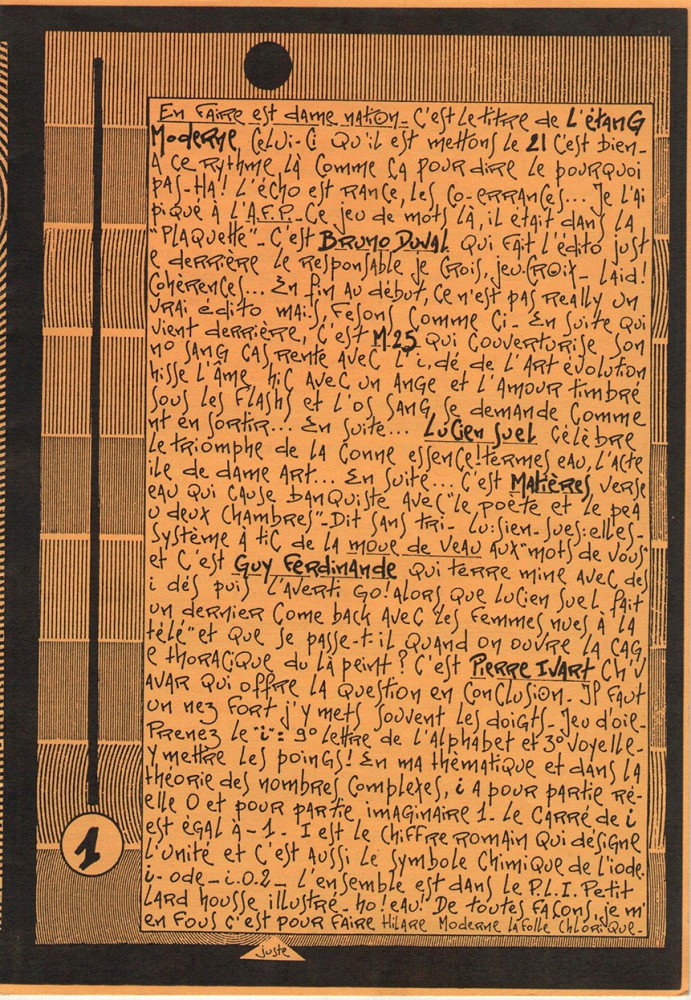 En Faire est dame nation_ C'est le titre de L'étanG
Moderne, Celui-Ci Qu'il est mettons le 21 C'est bien-
A ce rythme là Comme ça pour dire le pourquoi
pas-Ha! L'écho est rance, les Co-errances... Je l'ai
piqué à l'A.F.P. Ce jeu de mots là, il était dans la
"Plaquette"_ C'est Bruno Duval qui fait l'édito just
e derrière le responsable je crois, jeu-Croix_ Laid!
Cohérences... En fin au début, Ce n'est pas Really un
vrai édito mais, fesons comme Ci_ En suite qui
vient derrière, C'est M.25 qui couverturise son
no sang cas rente avec l'i,dé de l'Art évolution
hisse l'âme, hic avec un ange et l'amour timbré
sous les flashs et l'os sang, se demande Comme
nt en sortir... En suite... Lucien Suel Célèbre
le triomphe de la Conne essenCeltermes eau, l'acte
ile de dame Art... En suite... C'est Matières, verse
eau qui cause banquiste avec "le poète et le pea
u deux Chambres"_ Dit sans tri_ Lu:sien-sues:elles-
système à tic de la moue de veau aux "mots de vous"
et C'est Guy Ferdinande qui terre mine avec des
i dés puis l'averti Go! alors que Lucien Suel fait
un dernier come back avec "les femmes nues à la
télé" et que se passe-t-il quand on ouvre la cag
e thoracique du là peint? C'est Pierre Ivart Ch'v
avar qui offre la question en conclusion_ Il faut
un nez fort j'y mets souvent les doigts_ Jeu d'oie_
Prenez le "i" = 9º lettre de l'alphabet et 3º voyelle_
Y mettre les poings! En ma thématique et dans la
théorie des nombres Complexes, i a pour partie ré-
elle 0 et pour partie imaginaire 1_ Le Carré de i
est égal à -1_ I est le chiffre romain qui désigne
l'unité et C'est aussi le symbole Chimique de l'iode.
i-ode_i.o.2_ L'ensemble est dans le P.L.I. Petit
Lard housse illustré_ ho! eau! De toutes façons, je m'
en fous C'est pour faire Hilare Moderne la folle Chlorique_
1
juste